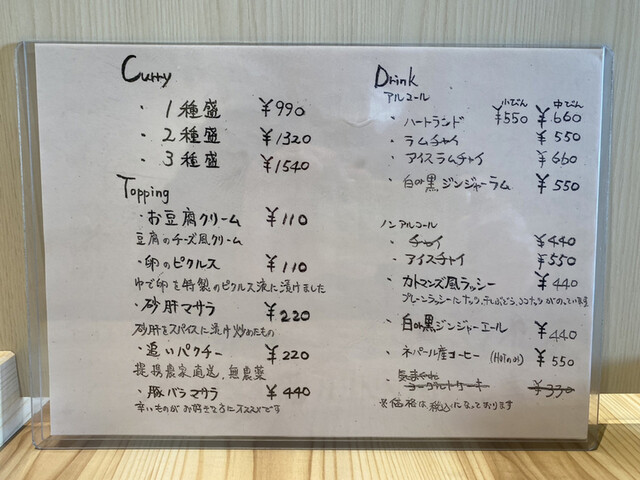 Curry
・1種盛 ¥990
・2種盛 ¥1320
・3種盛 ¥1540
Topping
・お豆腐クリーム ¥110
豆腐のチーズ風クリーム
・卵のピクルス ¥110
ゆで卵を特製のピクルス液に漬けました
・砂肝マサラ ¥220
砂肝をスパイスに漬け炒めたもの
・追いパクチー ¥220
提携農家直送、無農薬
・豚バラマサラ ¥440
辛いものがお好きな方にオススメです
Drink
アルコール
小びん 中びん
・ハートランド ¥550 ¥660
・ラムチャイ ¥550
・アイスラムチャイ ¥660
・白or黒ジンジャーラム ¥550
ノンアルコール
・チャイ ¥440
・アイスチャイ ¥550
・カトマンズ風ラッシー ¥440
プレーンラッシーにナッツ、干しぶどう、ココナッツがのっています
・白or黒ジンジャーエール ¥440
・ネパール産コーヒー (Hotのみ) ¥550
・気まぐれ
ヨーグルトケーキ ¥330
※価格は税込になっております